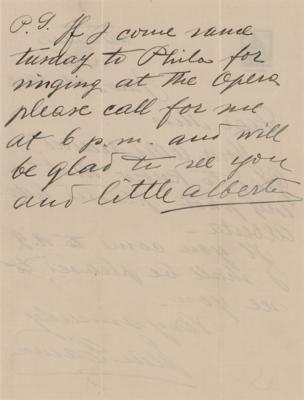 P.S. If I come same
tusday to Phila for
singing at the Opera
please call for me
at 6 p.m. and will
be glad to see you
and little Alberto